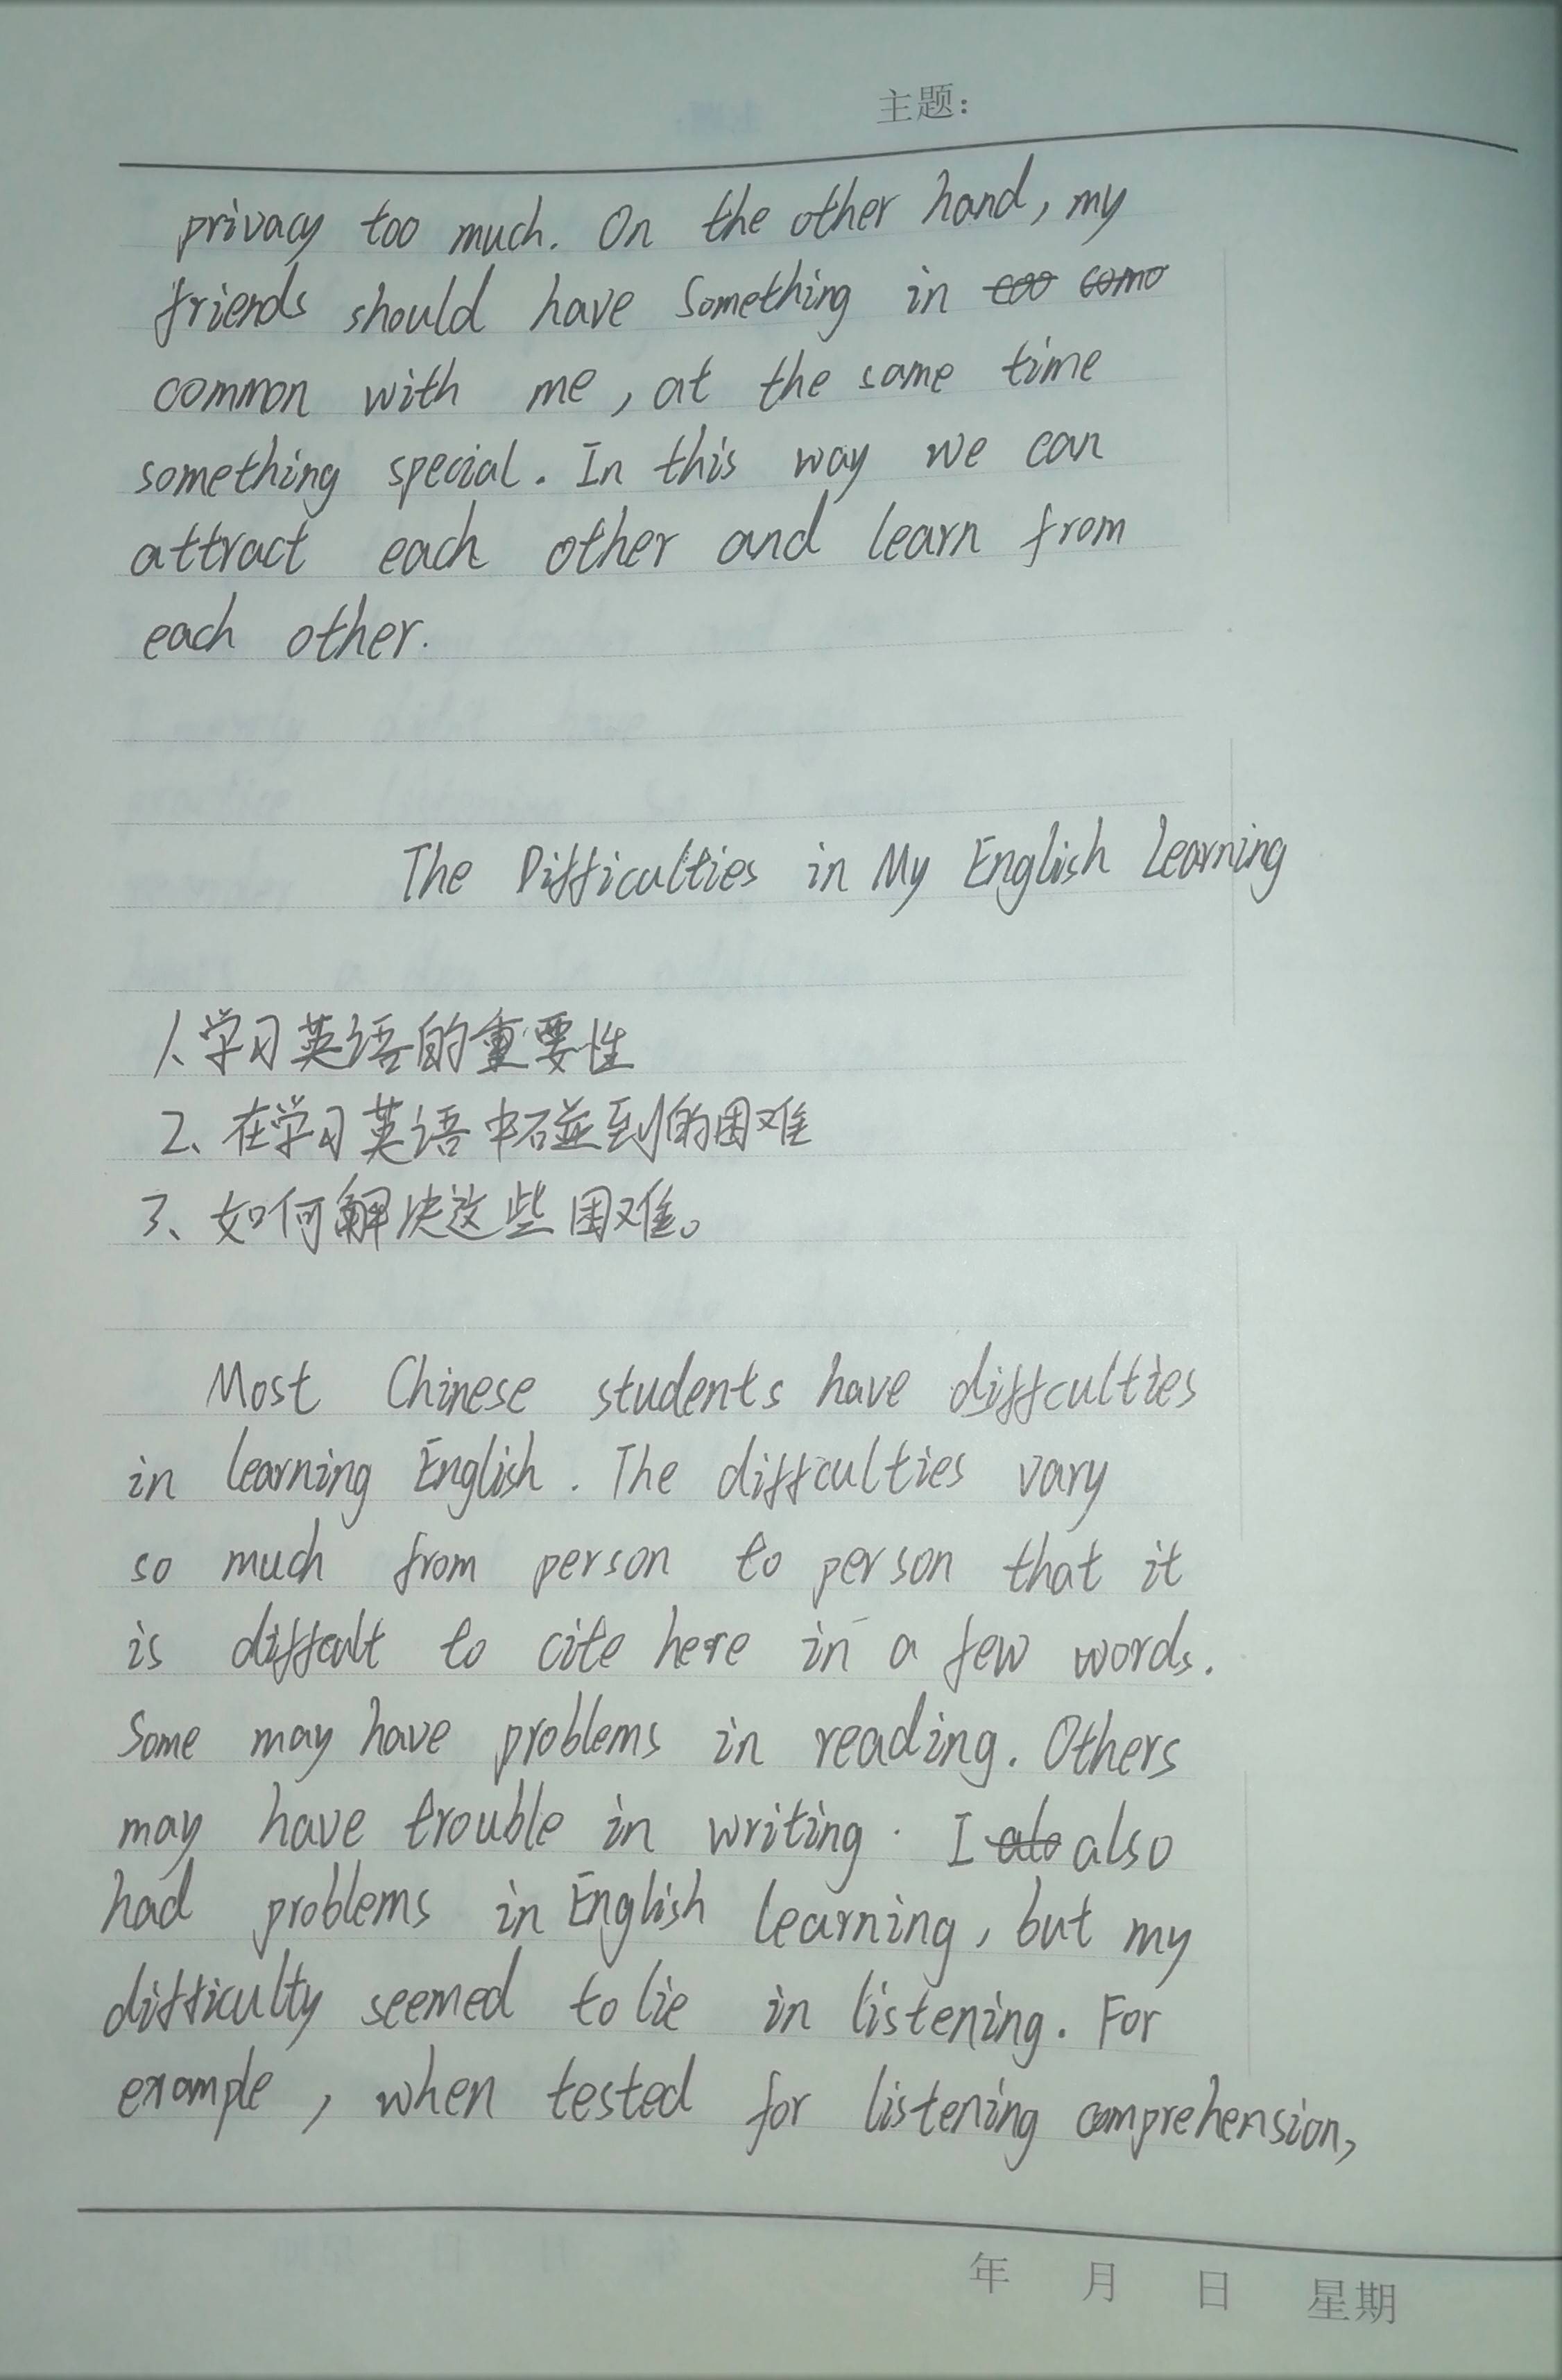 主题:
privacy too much. On the other hand, my
friends should have something in coo como
common with me, at the same time
something special. In this way we can
attract each other and learn from
each other.
The Difficulties in My English Learning
1、学习英语的重要性
2、在学习英语中碰到的困难
3、如何解决这些困难。
Most Chinese students have diffculties
in learning English. The diffculties vary
so much from person to person that it
is diffcult to cite here in a few words.
Some may have problems in reading. Others
may have trouble in writing. I alo also
had problems in English learning, but my
difficulty seemed to lie in listening. For
example, when tested for listening comprehension,
年 月 日 星期